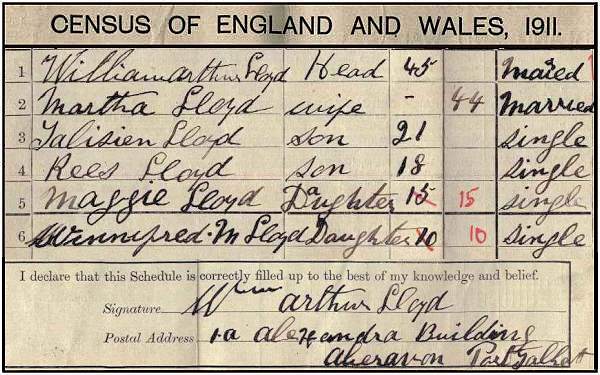 CENSUS OF ENGLAND AND WALES, 1911.
1 William arthur Lloyd Head 45 Maried
2 Martha Lloyd wife - 44 Married
3 Talisien Lloyd son 21 single
4 Rees Lloyd son 18 single
5 Maggie Lloyd Daughter 15 15 single
6 Winnefred. M Lloyd Daughter 10 10 single
I declare that this Schedule is correctly filled up to the best of my knowledge and belief.
Signature Wm arthur Lloyd
Postal Address 1a alexandra Building
aberavon Port Talbott